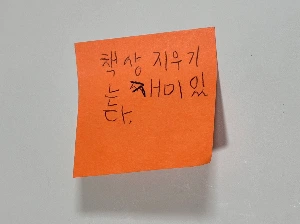 책상 지우기
는 재미있
다.